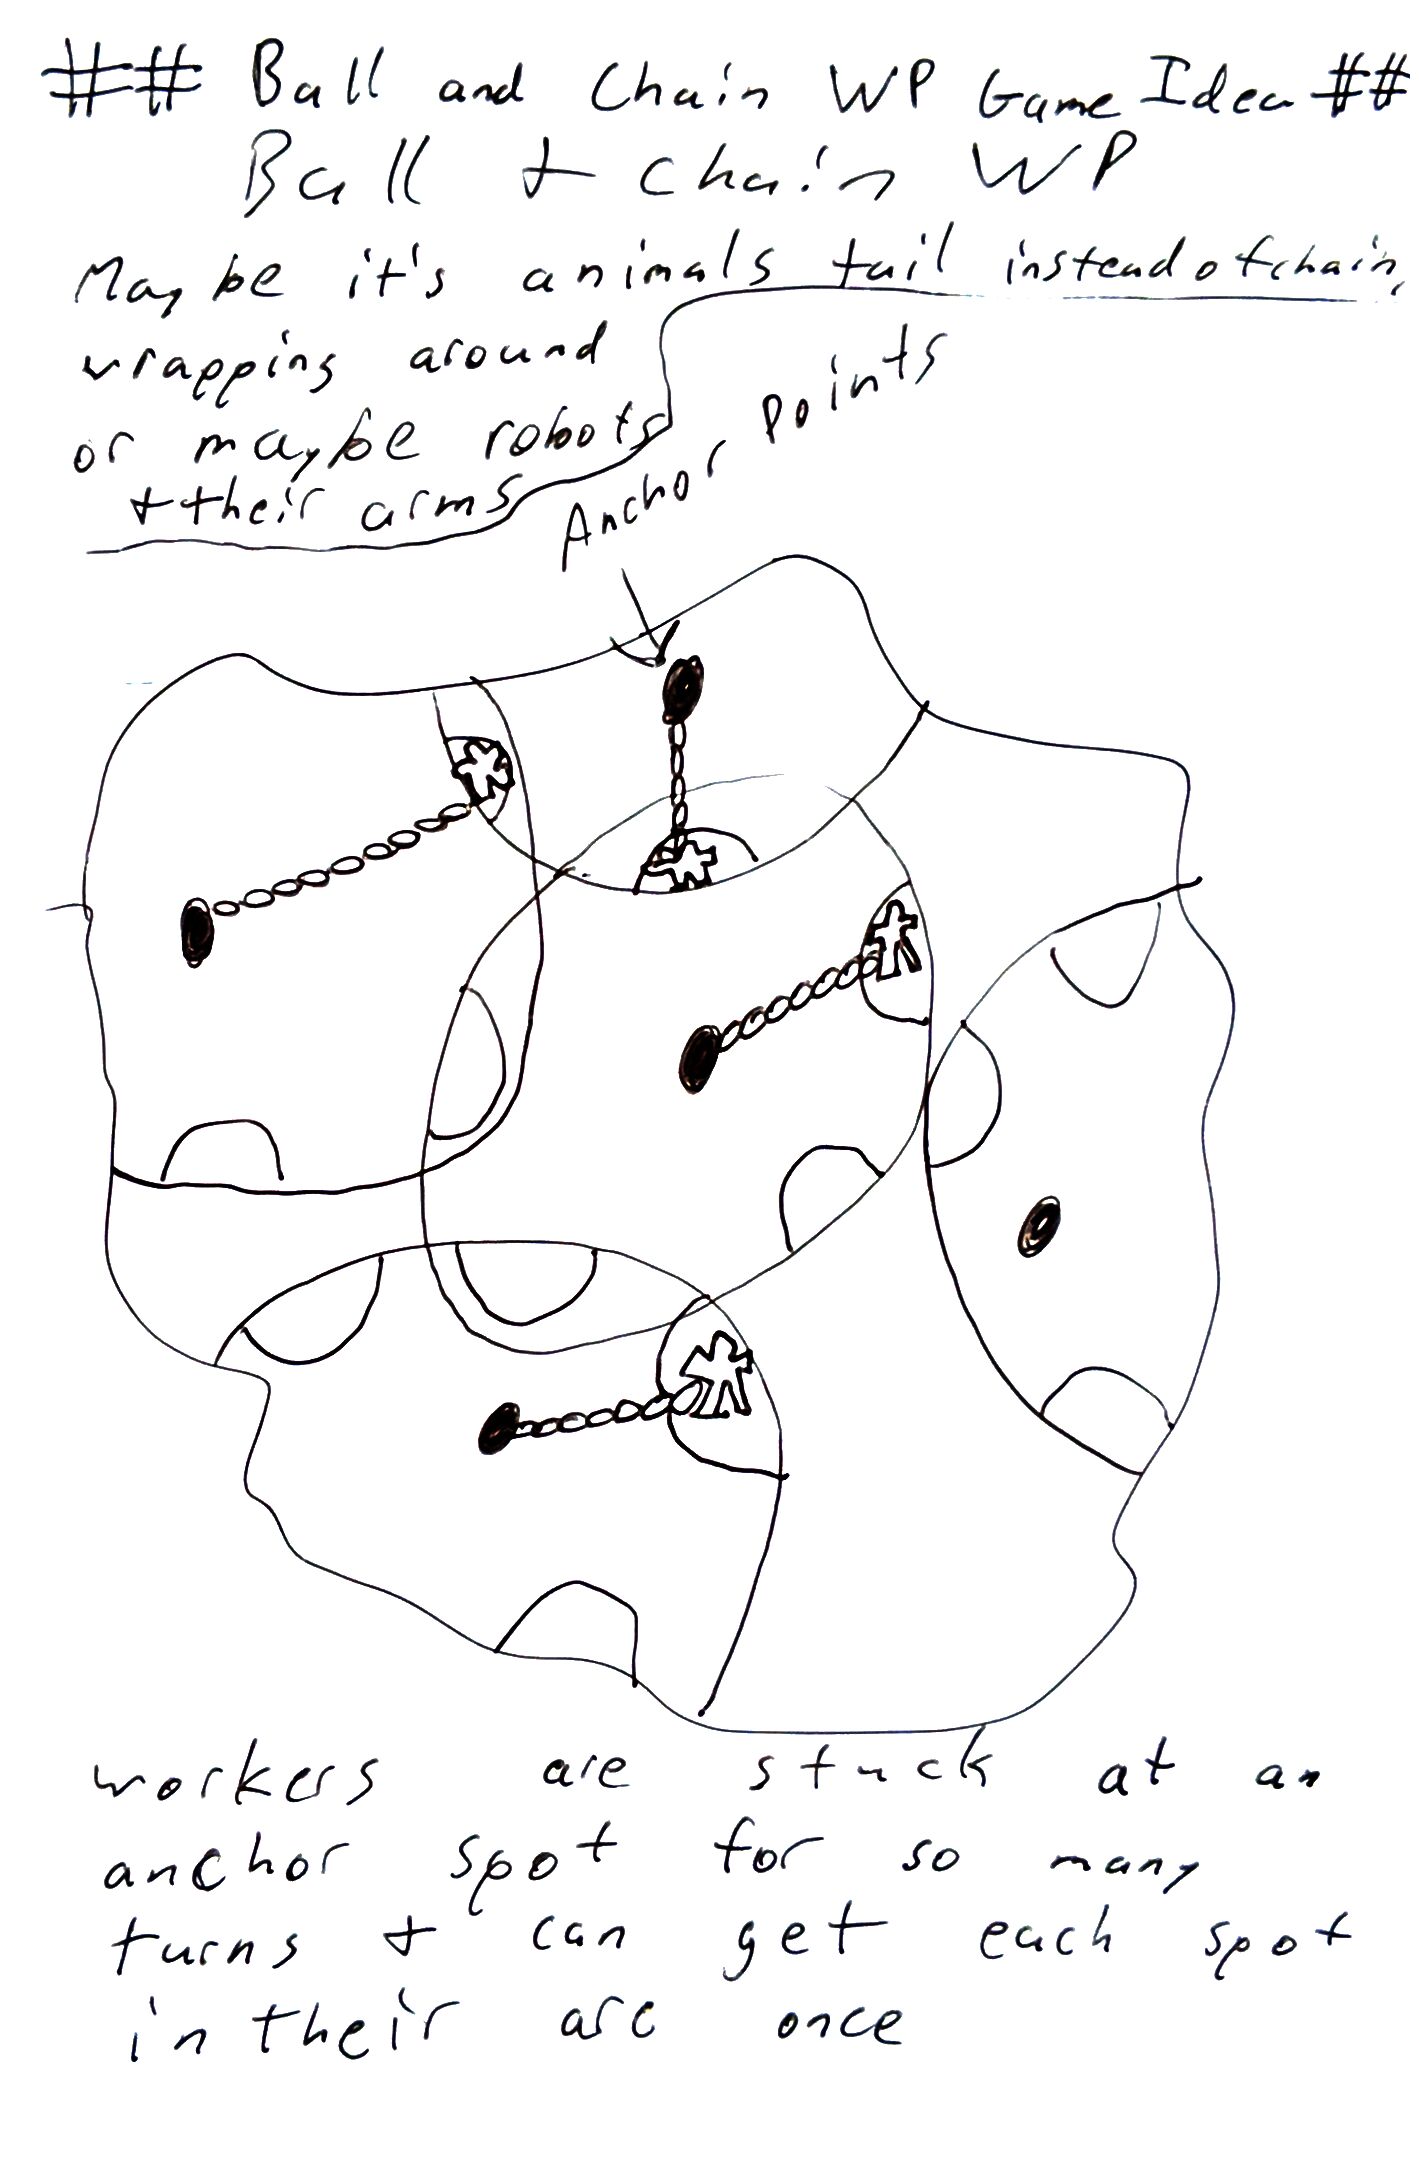 ## Ball and Chain WP Game Idea ##
Ball + chain WP
Maybe it's animals tail instead of chain,
wrapping around
or maybe robots
+ their arms
Anchor Points
workers are stuck at an
anchor spot for so many
turns + can get each spot
in their arc once